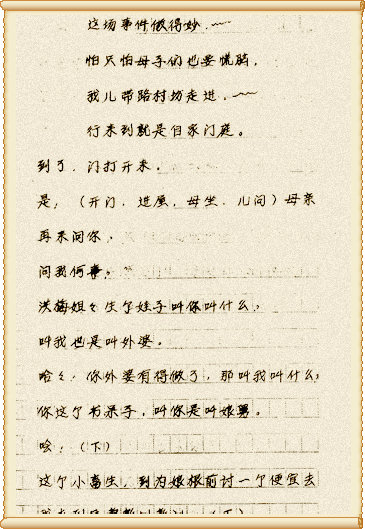 这场事件做得妙.
怕只怕母子们也要慌脑.
我儿带路村坊走进.
行来到就是自家门庭。
到了.门打开来.
是,(开门.进屋.母坐.儿问)母亲
再来问你,
问我何事,
洪梅姐々生了娃子叫你叫什么,
叫我也是叫外婆。
哈々,你外婆有得做了,那叫我叫什么,
你这个书呆子,叫你是叫娘舅。
哙,(下)
这个小畜生.到为娘根前讨一个便宜去